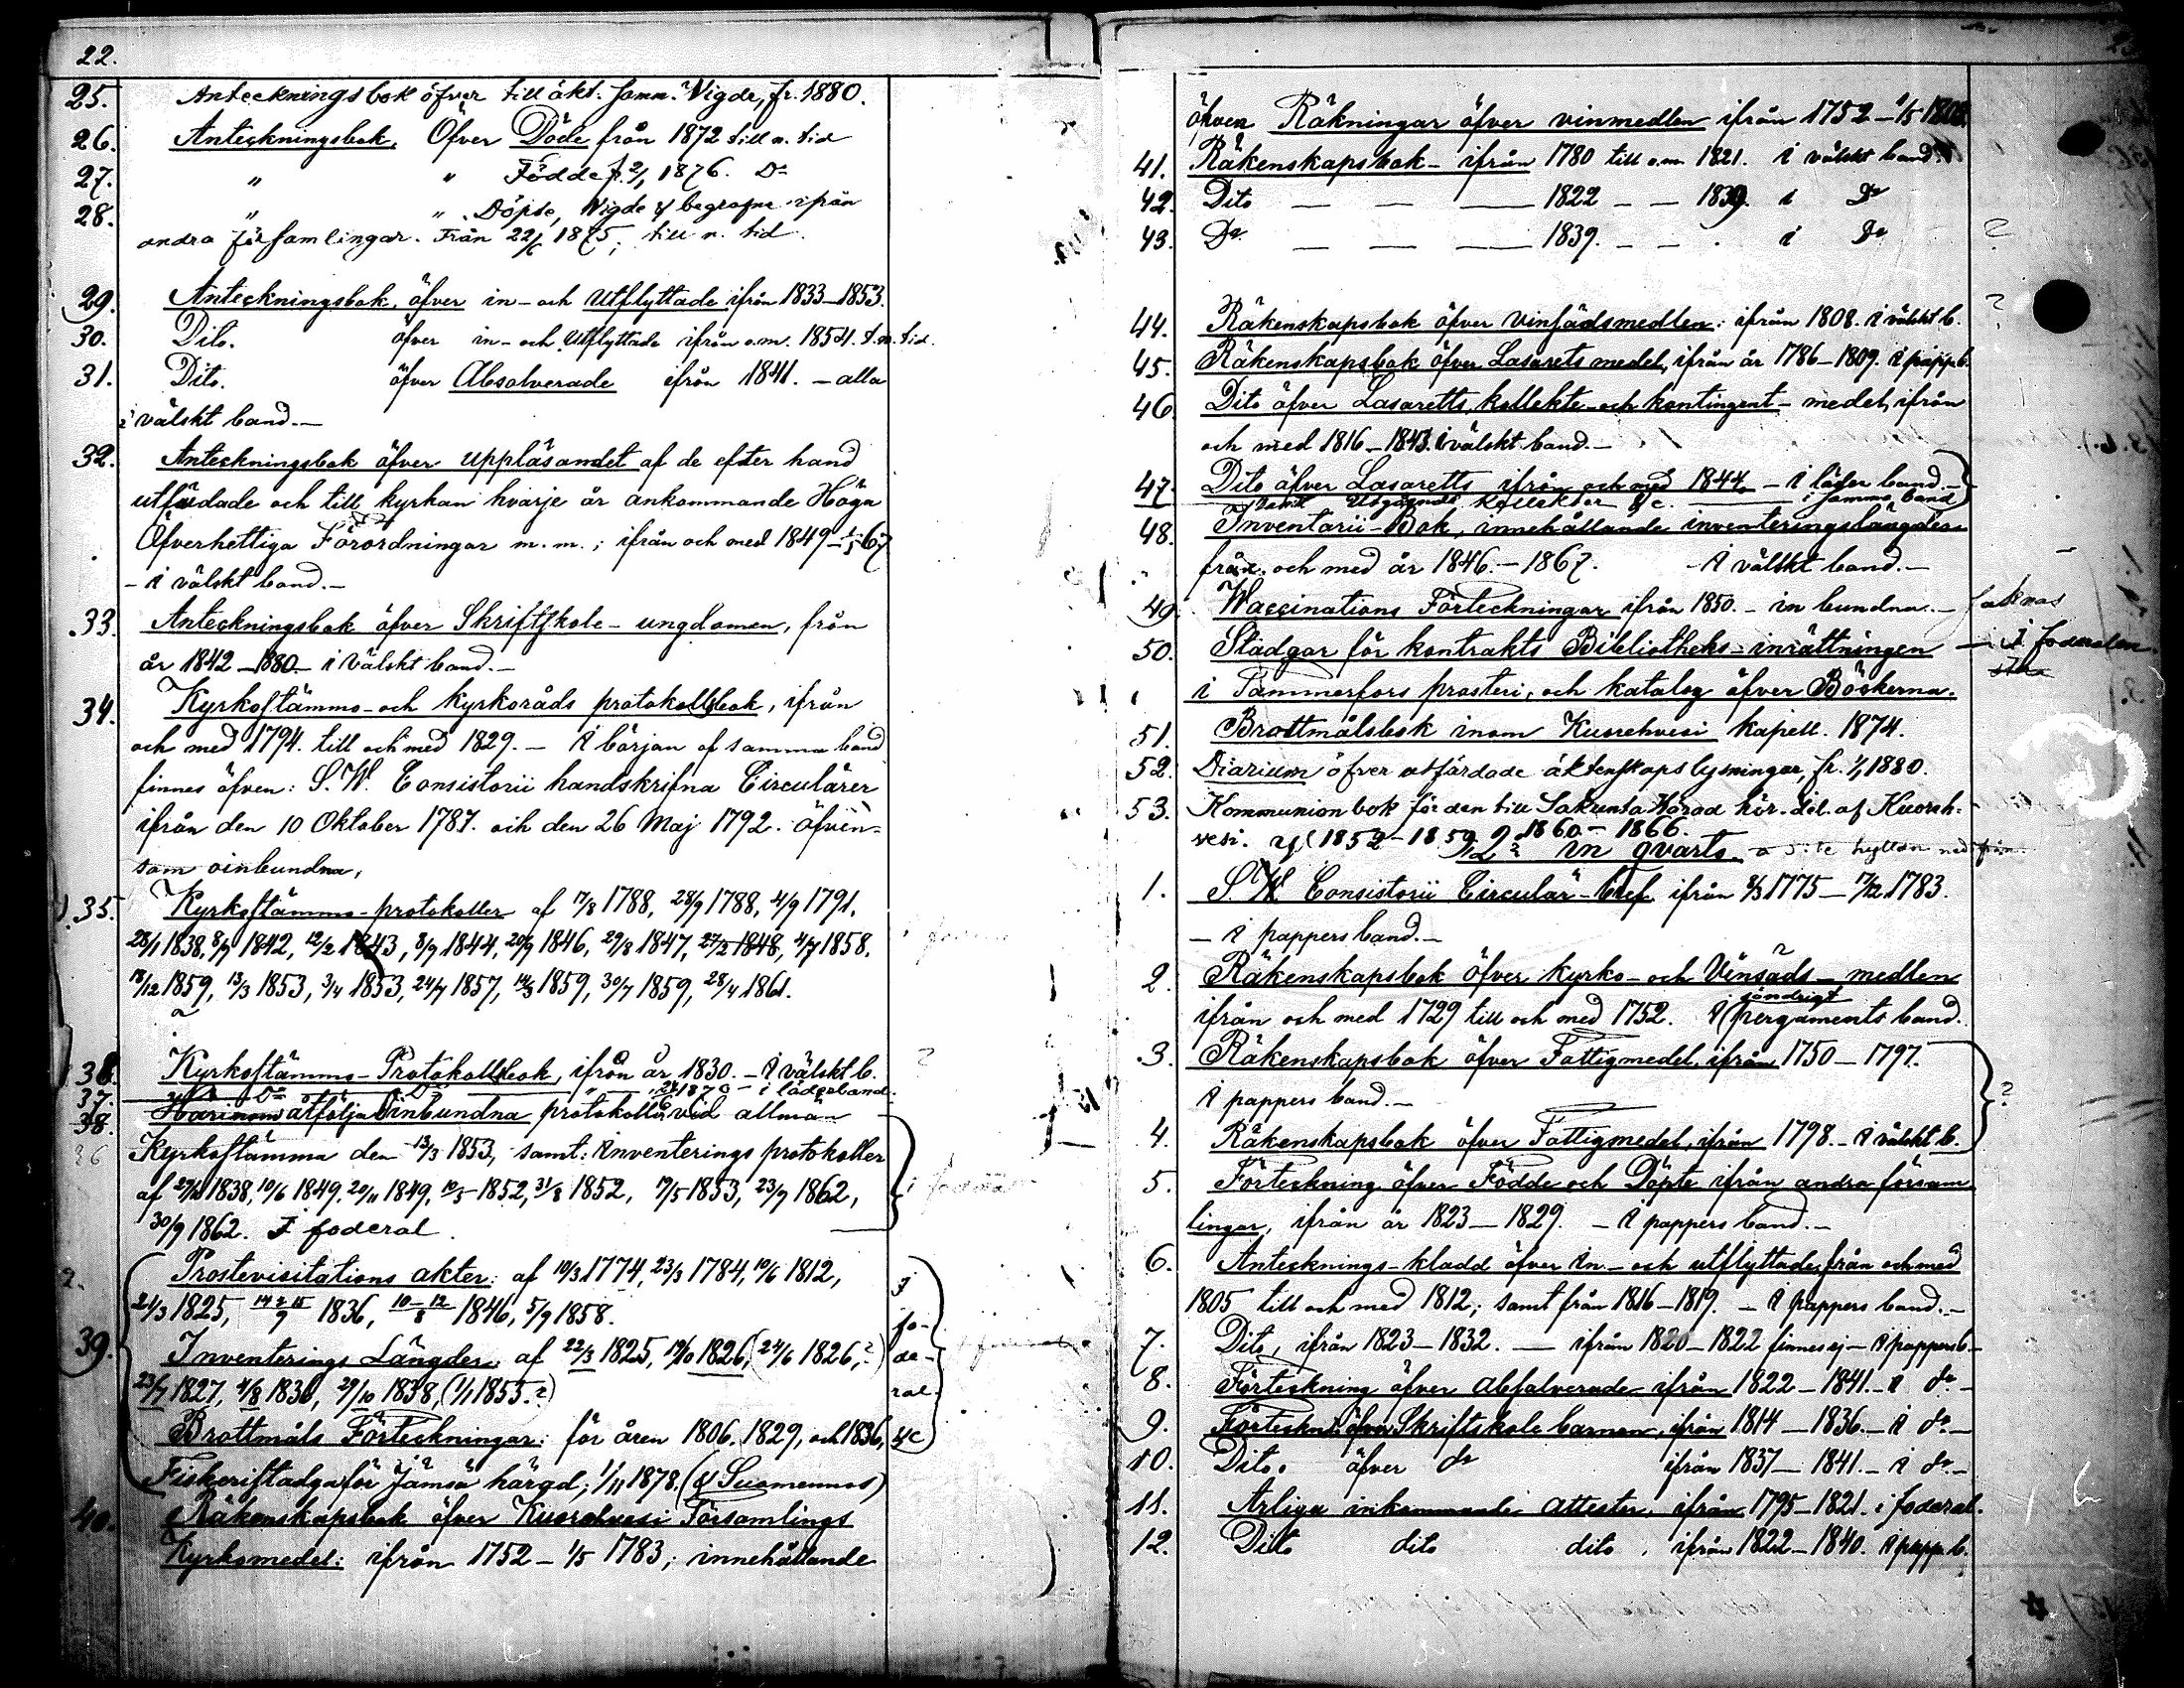 22.
25. Anteckningsbok öfver till äkt. samm. Vigde, fr. 1880.
26. Anteckningsbok, Öfver Döde från 1872 till n. tid
27. " " Födde fr. 2/1 1876. Do
28. " " Döpte, Wigde & begrafne ifrån
andra församlingar. Från 22/6 1875, till n. tid.
29. Anteckningsbok, öfver in- och Utflyttade ifrån 1833-1853.
30. Dito. öfver in- och Utflyttade ifrån o.m. 1854. t.n. tid.
31. Dito. öfver Absolverade ifrån 1841. - alla
i välskt band.-
32. Anteckningsbok öfver uppläsandet af de efter hand
utfärdade och till kyrkan hvarje år ankommande Höga
Öfverhettliga Förordningar m.m.; ifrån och med 1849- 67
- i välskt band.-
33. Anteckningsbok öfver Skriftskole-ungdomen, från
år 1842-1880- i Välskt band.-
34. Kyrkostämmo- och Kyrkoråds protokollsbok, ifrån
och med 1794. till och med 1829. - I början af samma band
finnes öfven: S.W. Consistorii handskrifna Circulärer
ifrån den 10 Oktober 1787. och den 26 Maj 1792. öfven-
som oinbundna,
35. Kyrkostämmo-protokoller af 17/8 1788, 28/9 1788, 4/9 1791,
28/1 1838, 8/9 1842, 12/2 1843, 8/9 1844, 20/9 1846, 29/8 1847, 27/2 1848, 4/7 1858.
18/12 1859, 13/3 1853, 3/4 1853, 24/7 1857, 14/3 1859, 30/7 1859, 28/4 1861.
36. Kyrkostämmo-Protokollsbok, ifrån år 1830. - I välskt b. ?
37. Do Do " 1870 - i läderband.
38. Härinom åtfölja oinbundna protokoller vid allmän
Kyrkostämma den 13/3 1853, samt: Inventerings protokoller
af 1838, 10/6 1849, 20/11 1849, 1852, 31/8 1852, 17/5 1853, 23/9 1862,
30/9 1862. I foderal.
Prostevisitations akter: af 10/3 1774, 23/3 1784, 10/6 1812,
21/3 1825, 1836, 10-12/8 1846, 5/9 1858.
39. Inventerings Längder: af 22/3 1825, 1826, (24/6 1826,?)
23/7 1827, 4/8 1836, 29/10 1838, (1/1 1855.?)
Brottmåls Förteckningar: för åren 1806, 1829, och 1836,
I fo-de-ral. &c
Fiskeristadga för Jämsä härad, 1/11 1878. (& Suomennos)
40. Räkenskapsbok öfver Kuorehvesi Församlings
Kyrkomedel: ifrån 1752-1/5 1783; innehållande
öfven Räkningar öfver vinmedlen ifrån 1752-1/5 1808.
41. Räkenskapsbok- ifrån 1780 till o.m. 1821. i välskt band.
42. Dito - - - 1822 - - 1839. i Do
43. Do - - - 1839. - - . i Do ?
44. Räkenskapsbok öfver Vinsädsmedlen: ifrån 1808. i välskt b. ?
45. Räkenskapsbok öfver Lasarets medel, ifrån år 1786-1809. i papp b.
46. Dito öfver Lasaretts, kollekte- och kontingent- medel, ifrån
och med 1816-1843. i välskt band.-
47. Dito öfver Lasaretts ifrån och med 1844. - i läder band.-
samt Utgående Kollekter &c. i samma band
48. Inventarii-Bok, innehållande inventeringslängder
från och med år 1846.-1867. - I välskt band.-
49. Waccinations Förteckningar ifrån 1850. - inbundna. - saknas
50. Stadgar för kontrakts Bibliotheks-inrättningen - i foderalen
i Tammerfors prosteri, och katalog öfver Böckerna.
51. Brottmålsbok inom Kuorehvesi kapell. 1874.
52. Diarium öfver utfärdade äktenskapslysningar, fr. 1/1 1880.
53. Kommunionbok för den till Satunta Härad hör. del. af Kuoreh-
vesi. 1852-1859, 1860-1866.
in qvarto. hyllan nedifrån.
1. S.W. Consistorii Circulär-bref, ifrån 8/3 1775-7/12 1783.
- I pappers band.-
2. Räkenskapsbok öfver Kyrko- och Vinsäds-medlen
ifrån och med 1729 till och med 1752. I (söndrigt pergaments band.
3. Räkenskapsbok öfver Fattigmedel, ifrån 1750-1797.
I pappers band.-
?
4. Räkenskapsbok öfver Fattigmedel, ifrån 1798. - I välskt b.
5. Förteckning öfver Födde och Döpte ifrån andra försam-
lingar, ifrån år 1823-1829. - I pappers band.-
6. Antecknings-kladd öfver In- och utflyttade, från och med
1805 till och med 1812; samt från 1816-1819. - I pappers band.-
7. Dito, ifrån 1823-1832. - ifrån 1820-1822 finnes ej - I pappers b.
8. Förteckning öfver absolverade ifrån 1822-1841.- I do-
9. Förteckn. öfver Skriftskole barnen, ifrån 1814-1836.- I do-
10. Dito. öfver do ifrån 1837-1841.- I do-
11. Årliga inkommande attester, ifrån 1795-1821. i foderal.
12. Dito dito dito, ifrån 1822-1840. I papp. b.